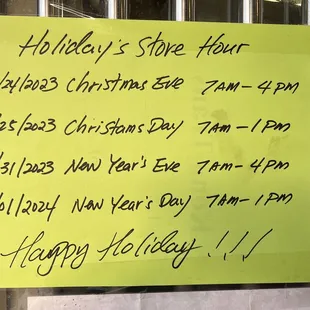 Holiday's Store Hour
/24/2023 Christmas Eve 7AM - 4PM
/25/2023 Christams Day 7AM - 1PM
/31/2023 New Year's Eve 7AM - 4PM
/01/2024 New Year's Day 7AM - 1PM
Happy Holiday!!!